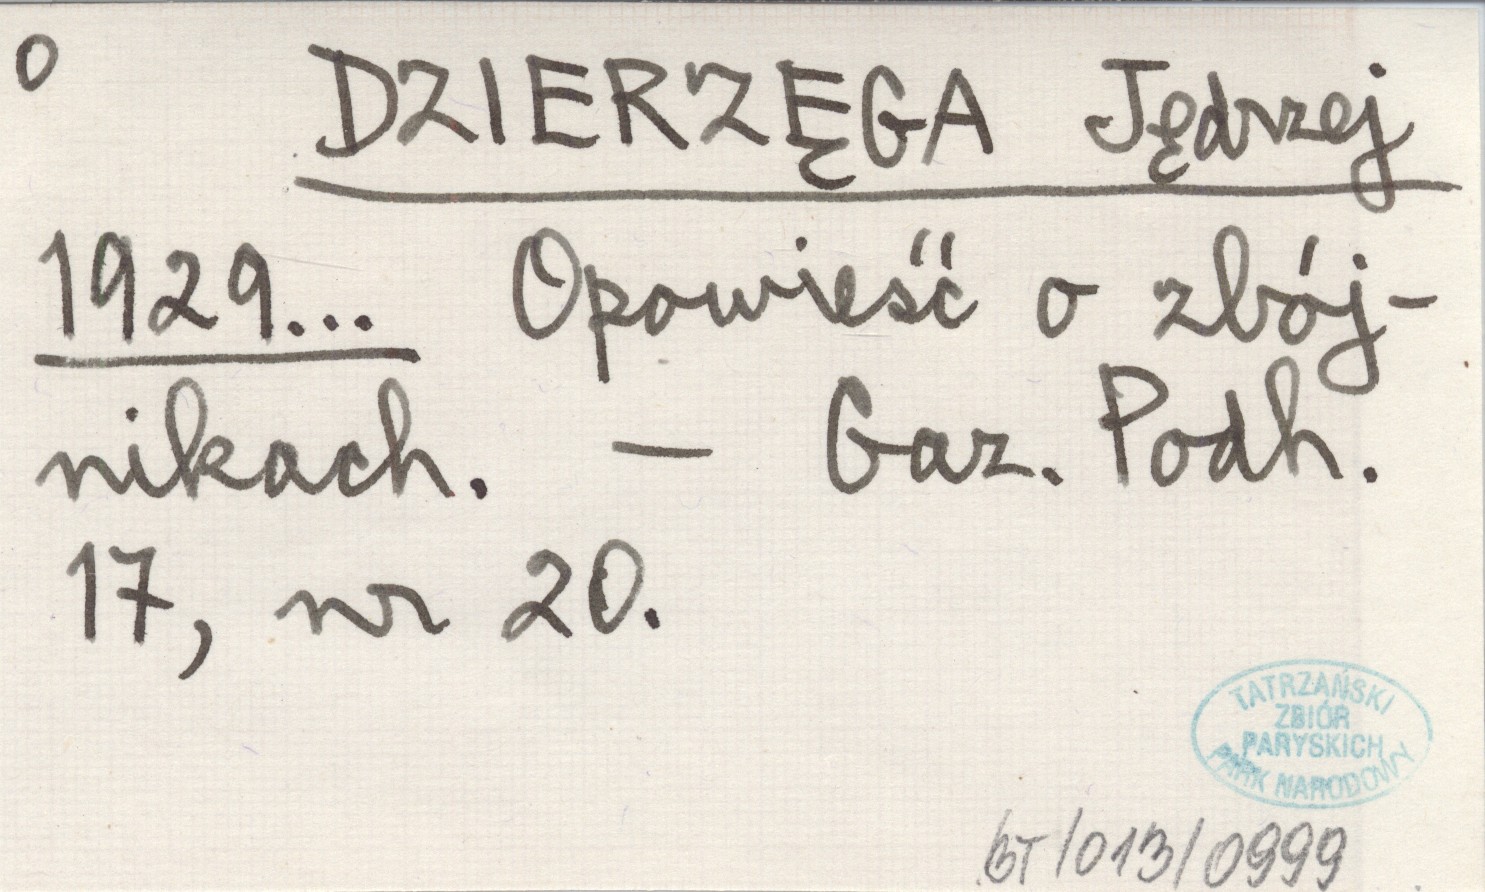 o DZIERZĘGA Jędrzej
1929... Opowieść o zbój-
nikach. — Gaz. Podh.
17, nr 20.
TATRZAŃSKI
ZBIÓR
PARYSKICH
PARK NARODOWY
BT/013/0999